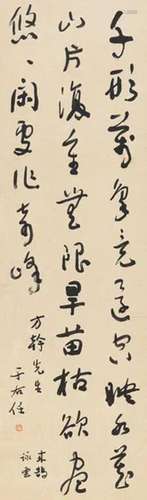 千形萬象竟還空映水藏
山片復重無限旱苗枯欲盡
悠悠閑處作奇峰
方幹先生
于右任
來鵠
詠雲